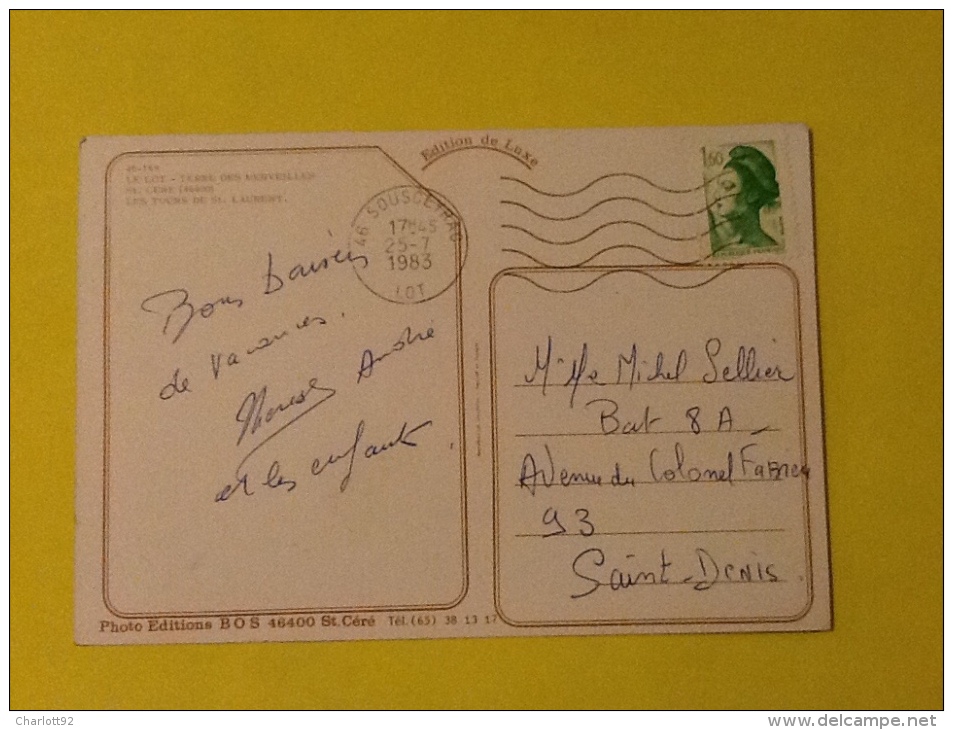 Edition de Luxe
46-
LE LOT - TERRE DES MERVEILLES
St. CERE (46400)
LES TOURS DE St. LAURENT.
46 SOUSCEYRAC
17H45
25-7
1983
LOT
1,60
Bons baisers
de vacances.
André
et les enfants.
Mr Mme Michel Sellier
Bat 8 A
Avenue du Colonel Fabien
93
Saint-Denis
Photo Editions BOS 46400 St. Céré Tél. (65) 38 13 17
Charlott92
delcampe.net